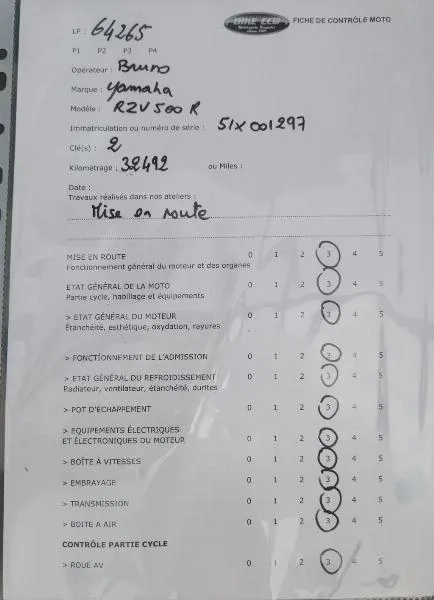 BIKE ECO
FICHE DE CONTRÔLE MOTO
LP : 64265
P1 P2 P3 P4
Opérateur : Bruno
Marque : Yamaha
Modèle : RZV 500 R
Immatriculation ou numéro de série : 51X 001297
Clé(s) : 2
Kilométrage : 32492 ou Miles :
Date :
Travaux réalisés dans nos ateliers :
Mise en route
MISE EN ROUTE 0 1 2 3 4 5
Fonctionnement général du moteur et des organes
ETAT GÉNÉRAL DE LA MOTO 0 1 2 3 4 5
Partie cycle, habillage et équipements
> ETAT GÉNÉRAL DU MOTEUR 0 1 2 3 4 5
Étanchéité, esthétique, oxydation, rayures
> FONCTIONNEMENT DE L'ADMISSION 0 1 2 3 4 5
> ETAT GÉNÉRAL DU REFROIDISSEMENT 0 1 2 3 4 5
Radiateur, ventilateur, étanchéité, durites
> POT D'ÉCHAPPEMENT 0 1 2 3 4 5
> EQUIPEMENTS ÉLECTRIQUES
ET ÉLECTRONIQUES DU MOTEUR 0 1 2 3 4 5
> BOÎTE À VITESSES 0 1 2 3 4 5
> EMBRAYAGE 0 1 2 3 4 5
> TRANSMISSION 0 1 2 3 4 5
> BOITE A AIR 0 1 2 3 4 5
CONTRÔLE PARTIE CYCLE
> ROUE AV 0 1 2 3 4 5